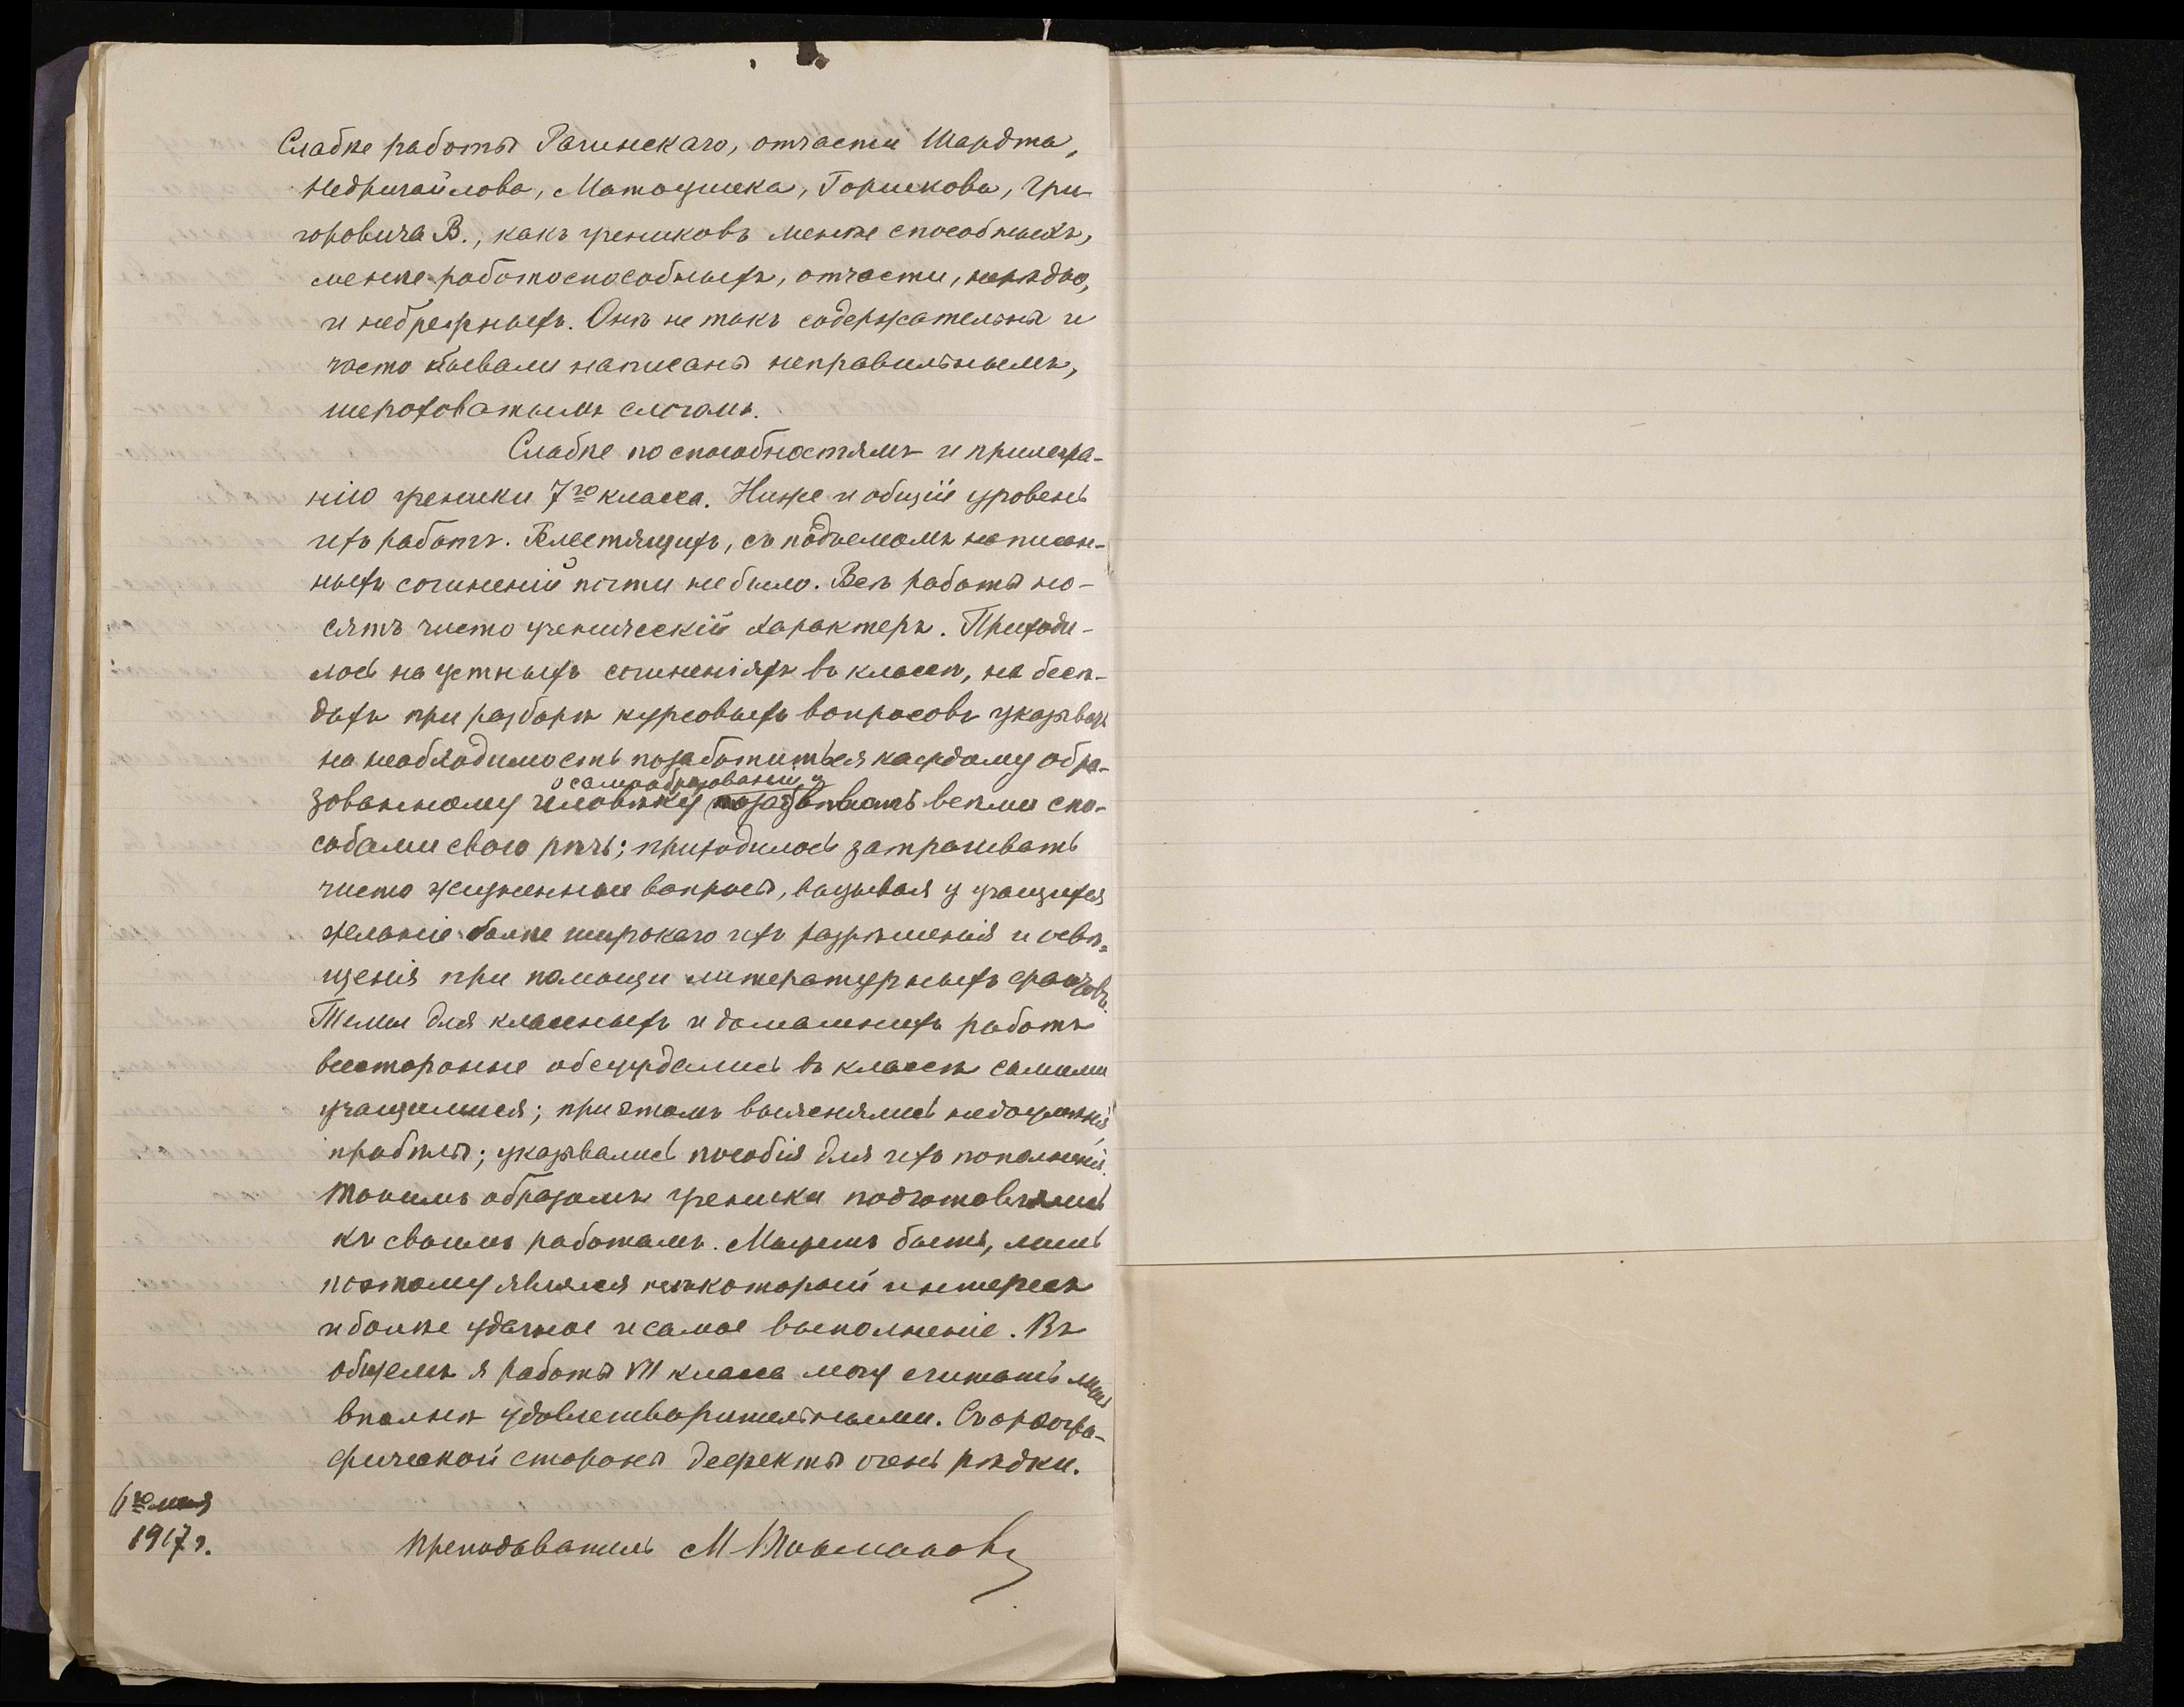 Слабѣе работы Рагинскаго, отчасти Шардта,
Недригайлова, Матоушека, Горшкова, Гри-
горовича В., какъ учениковъ менѣе способныхъ,
менѣе работоспособныхъ, отчасти, нерѣдко,
и небрежныхъ. Онѣ не такъ содержательны и
часто бывали написаны неправильнымъ,
шероховатымъ слогомъ.
Слабѣе по способностямъ и прилежа-
нію ученики 7го класса. Ниже и общій уровень
ихъ работъ. Блестящихъ, съ подъемомъ написан-
ныхъ сочиненій почти не было. Всѣ работы но-
сятъ чисто ученическій характеръ. Приходи-
лось на устныхъ сочиненіяхъ въ классѣ, на бесѣ-
дахъ при разборѣ курсовыхъ вопросовъ указывать
на необходимость позаботиться каждому обра-
о самообразованіи и
зованному человѣку всѣми спо-
собами свою рѣчь; приходилось затрагивать
чисто жизненные вопросы, вызывая у учащихся
желаніе болѣе широкаго ихъ разрѣшенія и освѣ-
щенія при помощи литературныхъ
Темы для классныхъ и домашнихъ работъ
всесторонне обсуждались въ классѣ самими
учащимися; при этомъ выяснялись недоумѣнія
пробѣлы; указывались пособія для ихъ пополненія.
Такимъ образомъ ученики подготовлялись
къ своимъ работамъ. Можетъ быть, лишь
поэтому явился нѣкоторый интересъ
и болѣе удачное и самое выполненіе. Въ
общемъ я работы VII класса могу считать лишь
вполнѣ удовлетворительными. Съ орѳогра-
фической стороны дефекты очень рѣдки.
6го мая
1917 г.
Преподаватель М